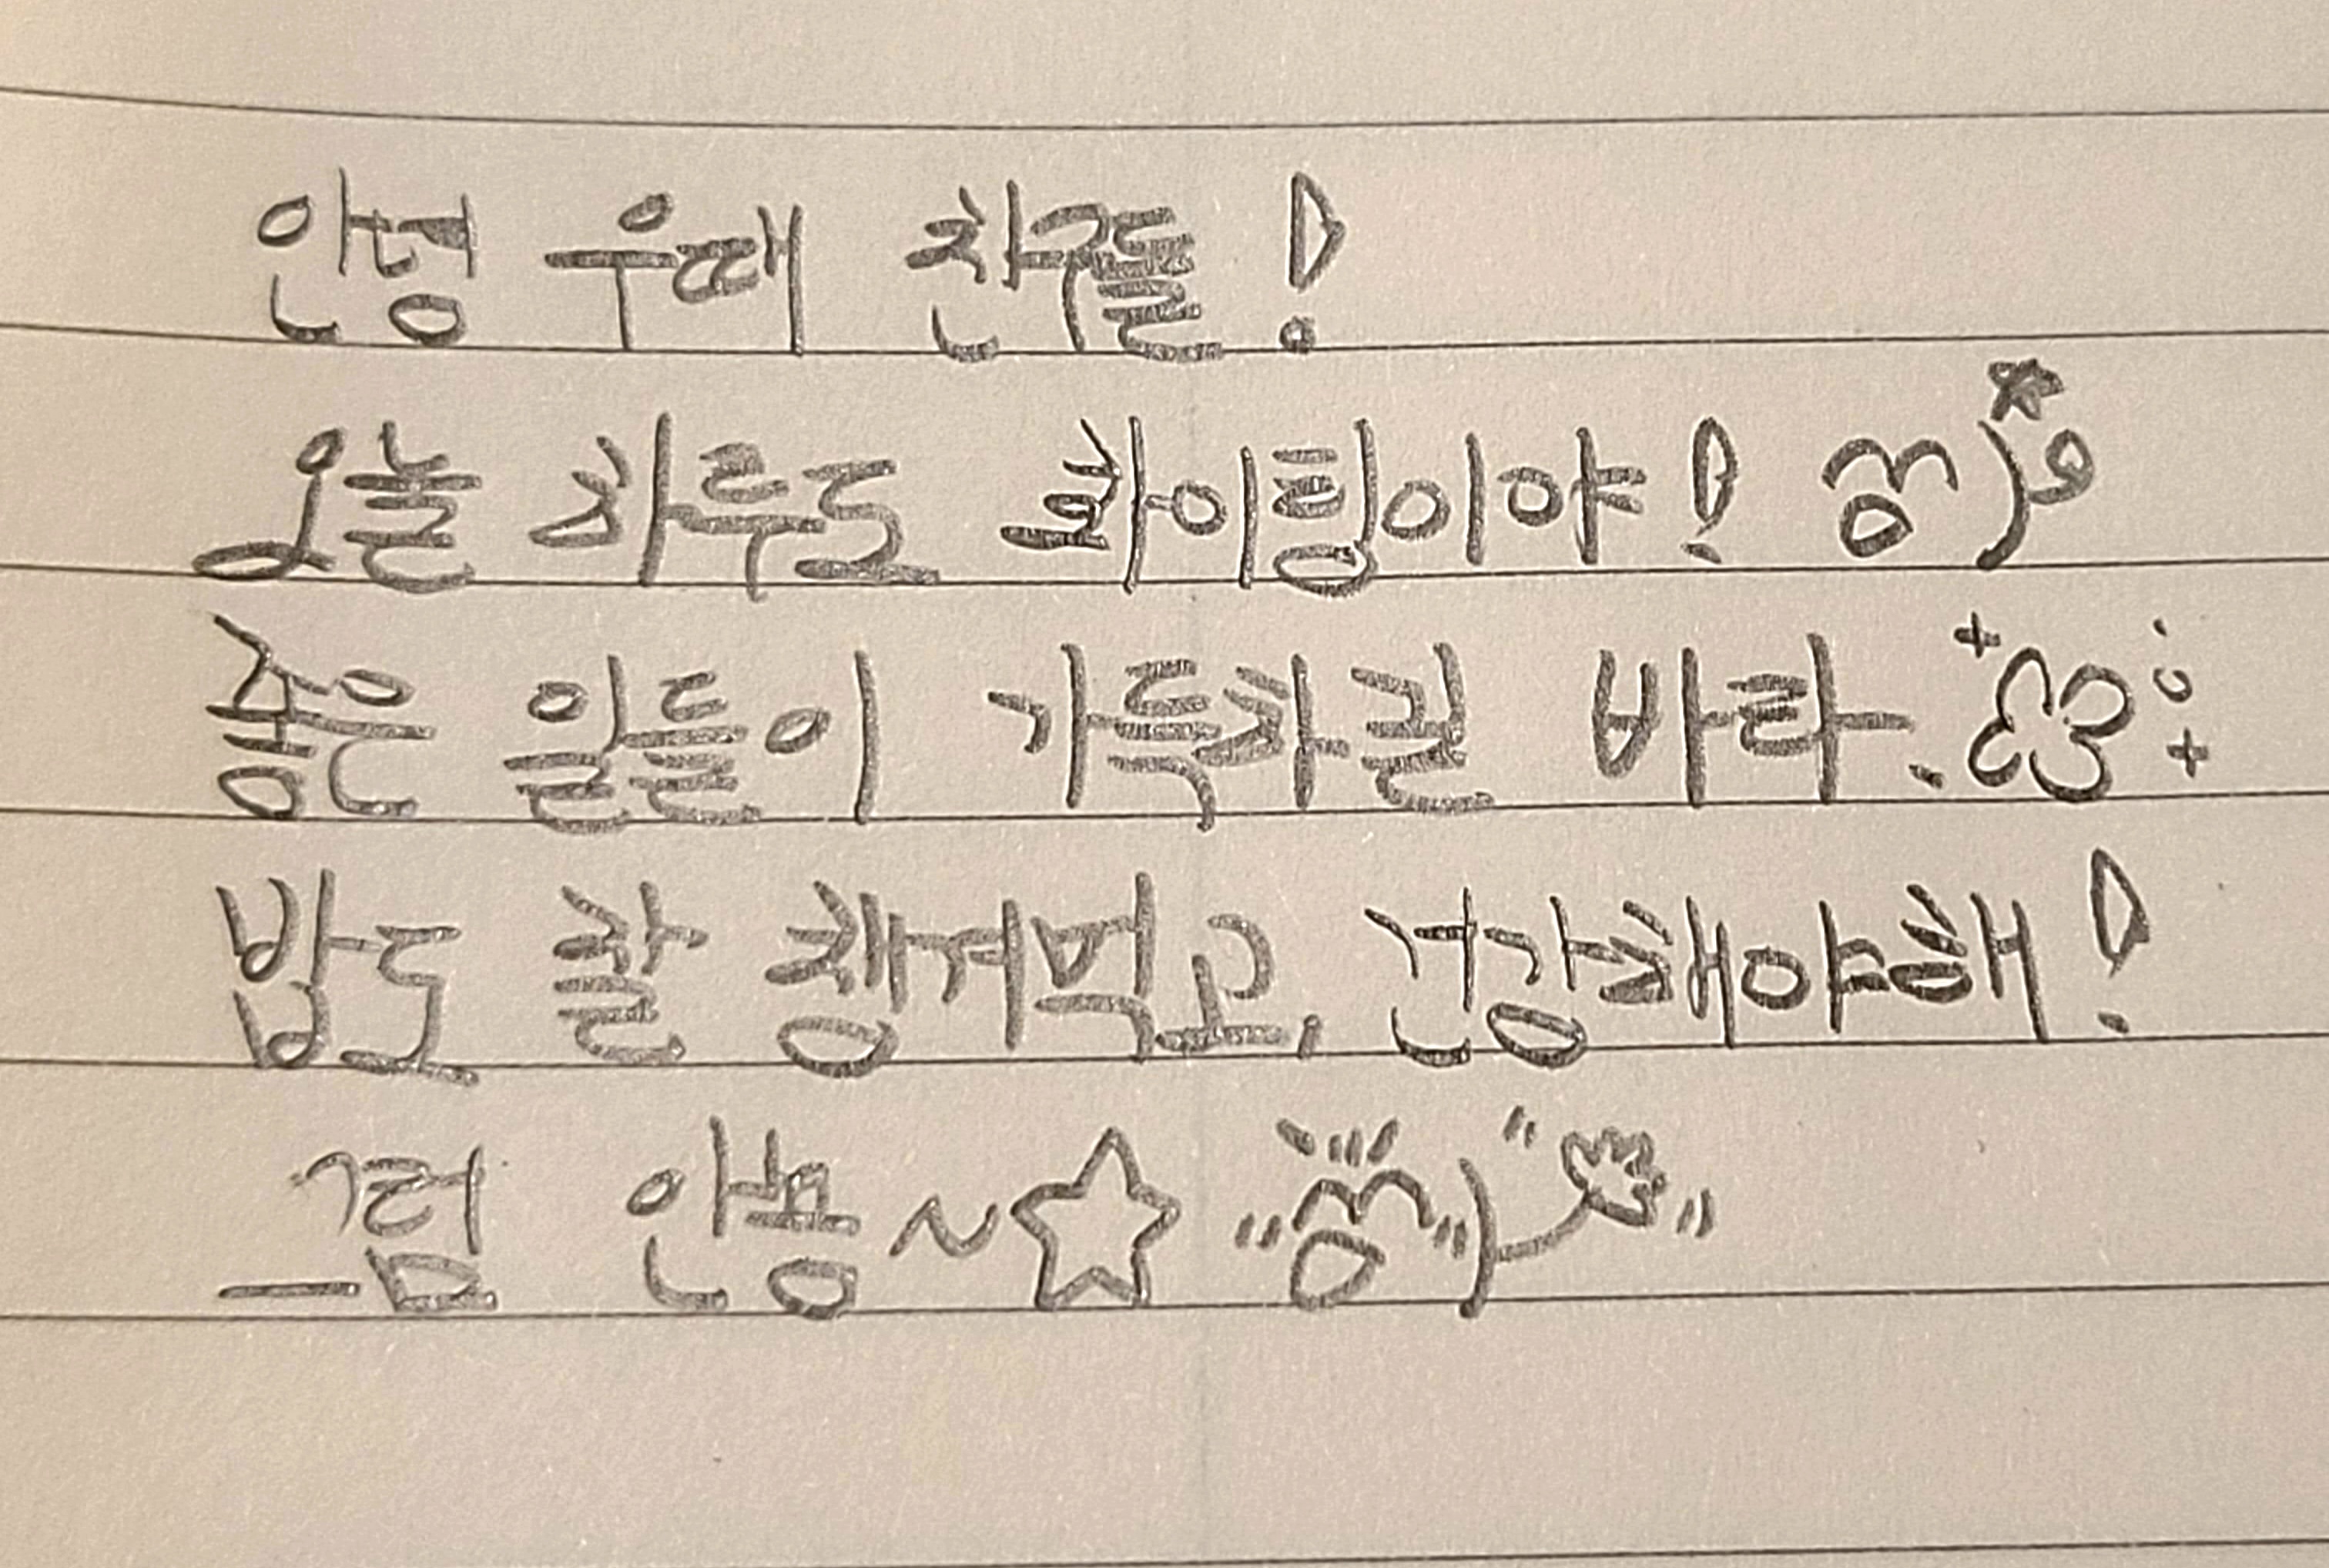 안녕 우때 친구들!
오늘 하루도 화이팅이야!
좋은 일들이 가득차길 바라.
밥도 잘 챙겨먹고, 건강해야해!
그럼 안뇽~☆